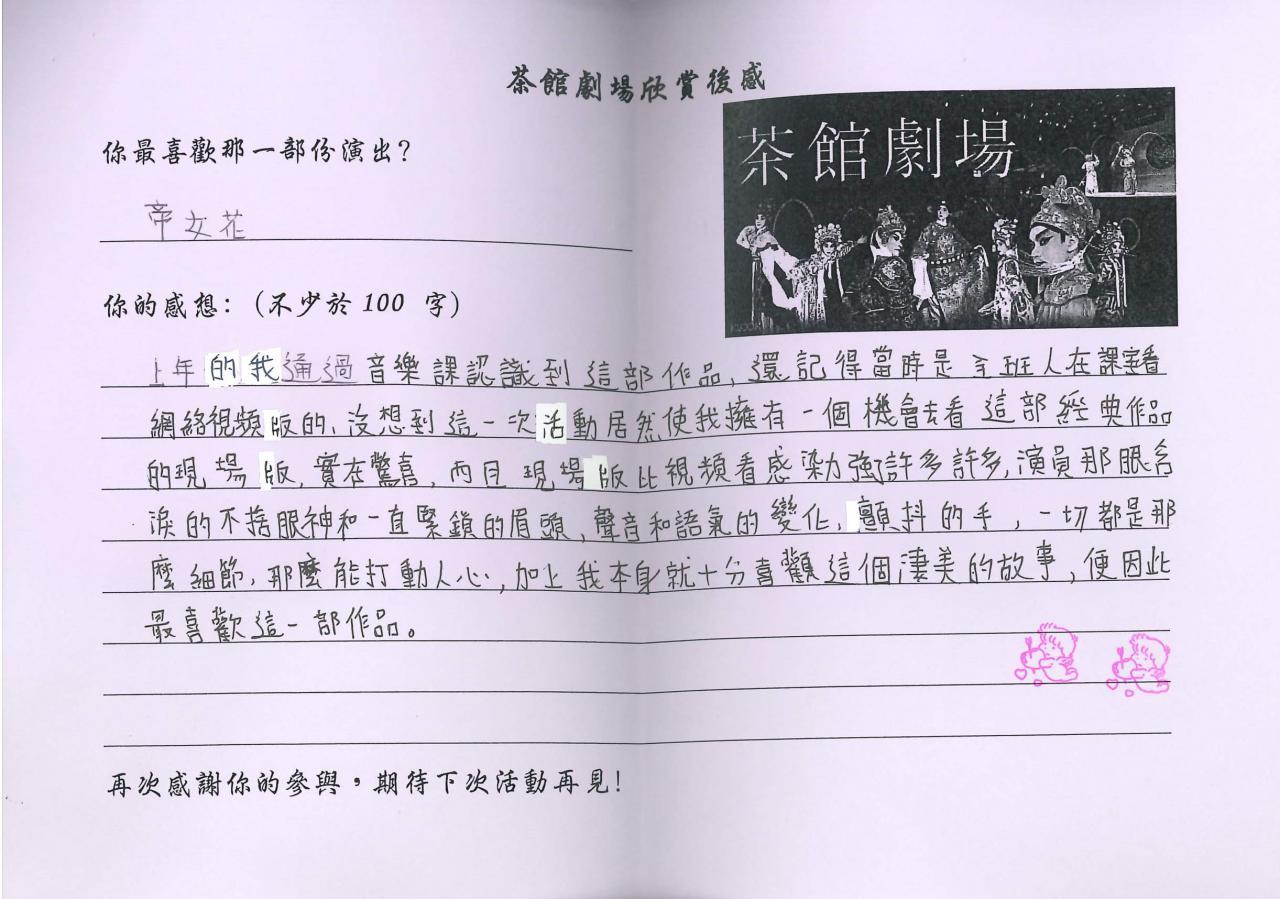 茶館劇場欣賞後感
茶館劇場
你最喜歡那一部份演出？
帝女花
你的感想：（不少於 100 字）
上年的我通過音樂課認識到這部作品，還記得當時是全班人在課室看
網絡視頻版的，沒想到這一次活動居然使我擁有一個機會去看這部經典作品
的現場版，實在驚喜，而且現場版比視頻看感染力強許多許多，演員那眼含
淚的不捨眼神和一直緊鎖的眉頭，聲音和語氣的變化，顫抖的手，一切都是那
麼細節，那麼能打動人心，加上我本身就十分喜歡這個淒美的故事，便因此
最喜歡這一部作品。
再次感謝你的參與，期待下次活動再見！